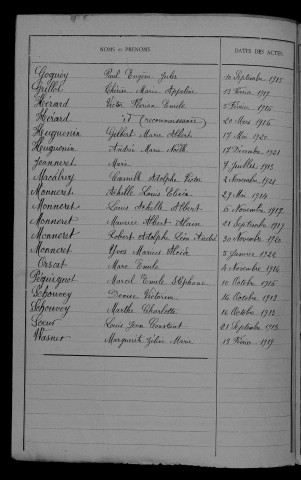 NOMS et PRÉNOMS DATES DES ACTES
Goguey Paul Eugène Jules 10 Septembre 1915
Grillot Marie 13 Février 1917
Hérard Victor Florian Emile 5 Février 1916
Hérard id (reconnaissance) 20 Mars 1916
Huguenin Gilbert Marie Albert 17 Mai 1920
Huguenin André Marie Noël 17 Décembre 1921
Jeanneret Marie 7 Juillet 1913
Camille Adolphe Victor 2 Novembre 1921
Monneret Achille Louis 29 Mai 1914
Monneret Louis Achille Albert 6 Novembre 1919
Monneret Maurice Albert Alain 21 Septembre 1917
Monneret Robert Adolphe Léon André 30 Novembre 1920
Monneret Yves Marius 3 Janvier 1922
Orsat Marc Emile 4 Novembre 1914
Péquignot Marcel Emile Stéphane 10 Octobre 1915
Schouvey Denise Victorine 14 Octobre 1913
Schouvey Marthe Charlotte 14 Octobre 1913
Louis Jean Constant 21 Septembre 1913
Wasner Marguerite Marie 13 Février 1919